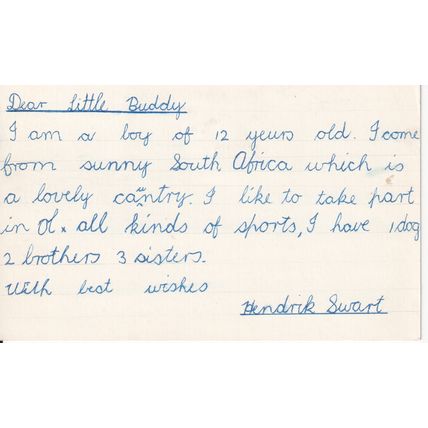 Dear Little Buddy
I am a boy of 12 years old. I come
from sunny South Africa which is
a lovely country. I like to take part
in Ol x all kinds of sports, I have 1 dog
2 brothers 3 sisters.
With best wishes
Hendrik Swart